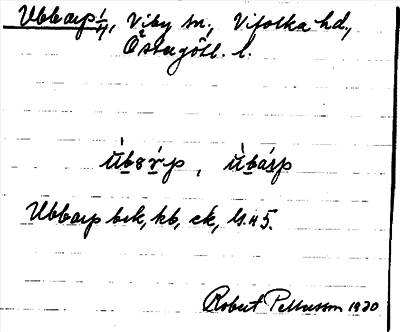 Ubbarp 1/4, Viby sn, Vifolka hd,
Östergötl. l.
Ubbarp brk, kb, ek, bl. 45.
Robert Pettersson 1930